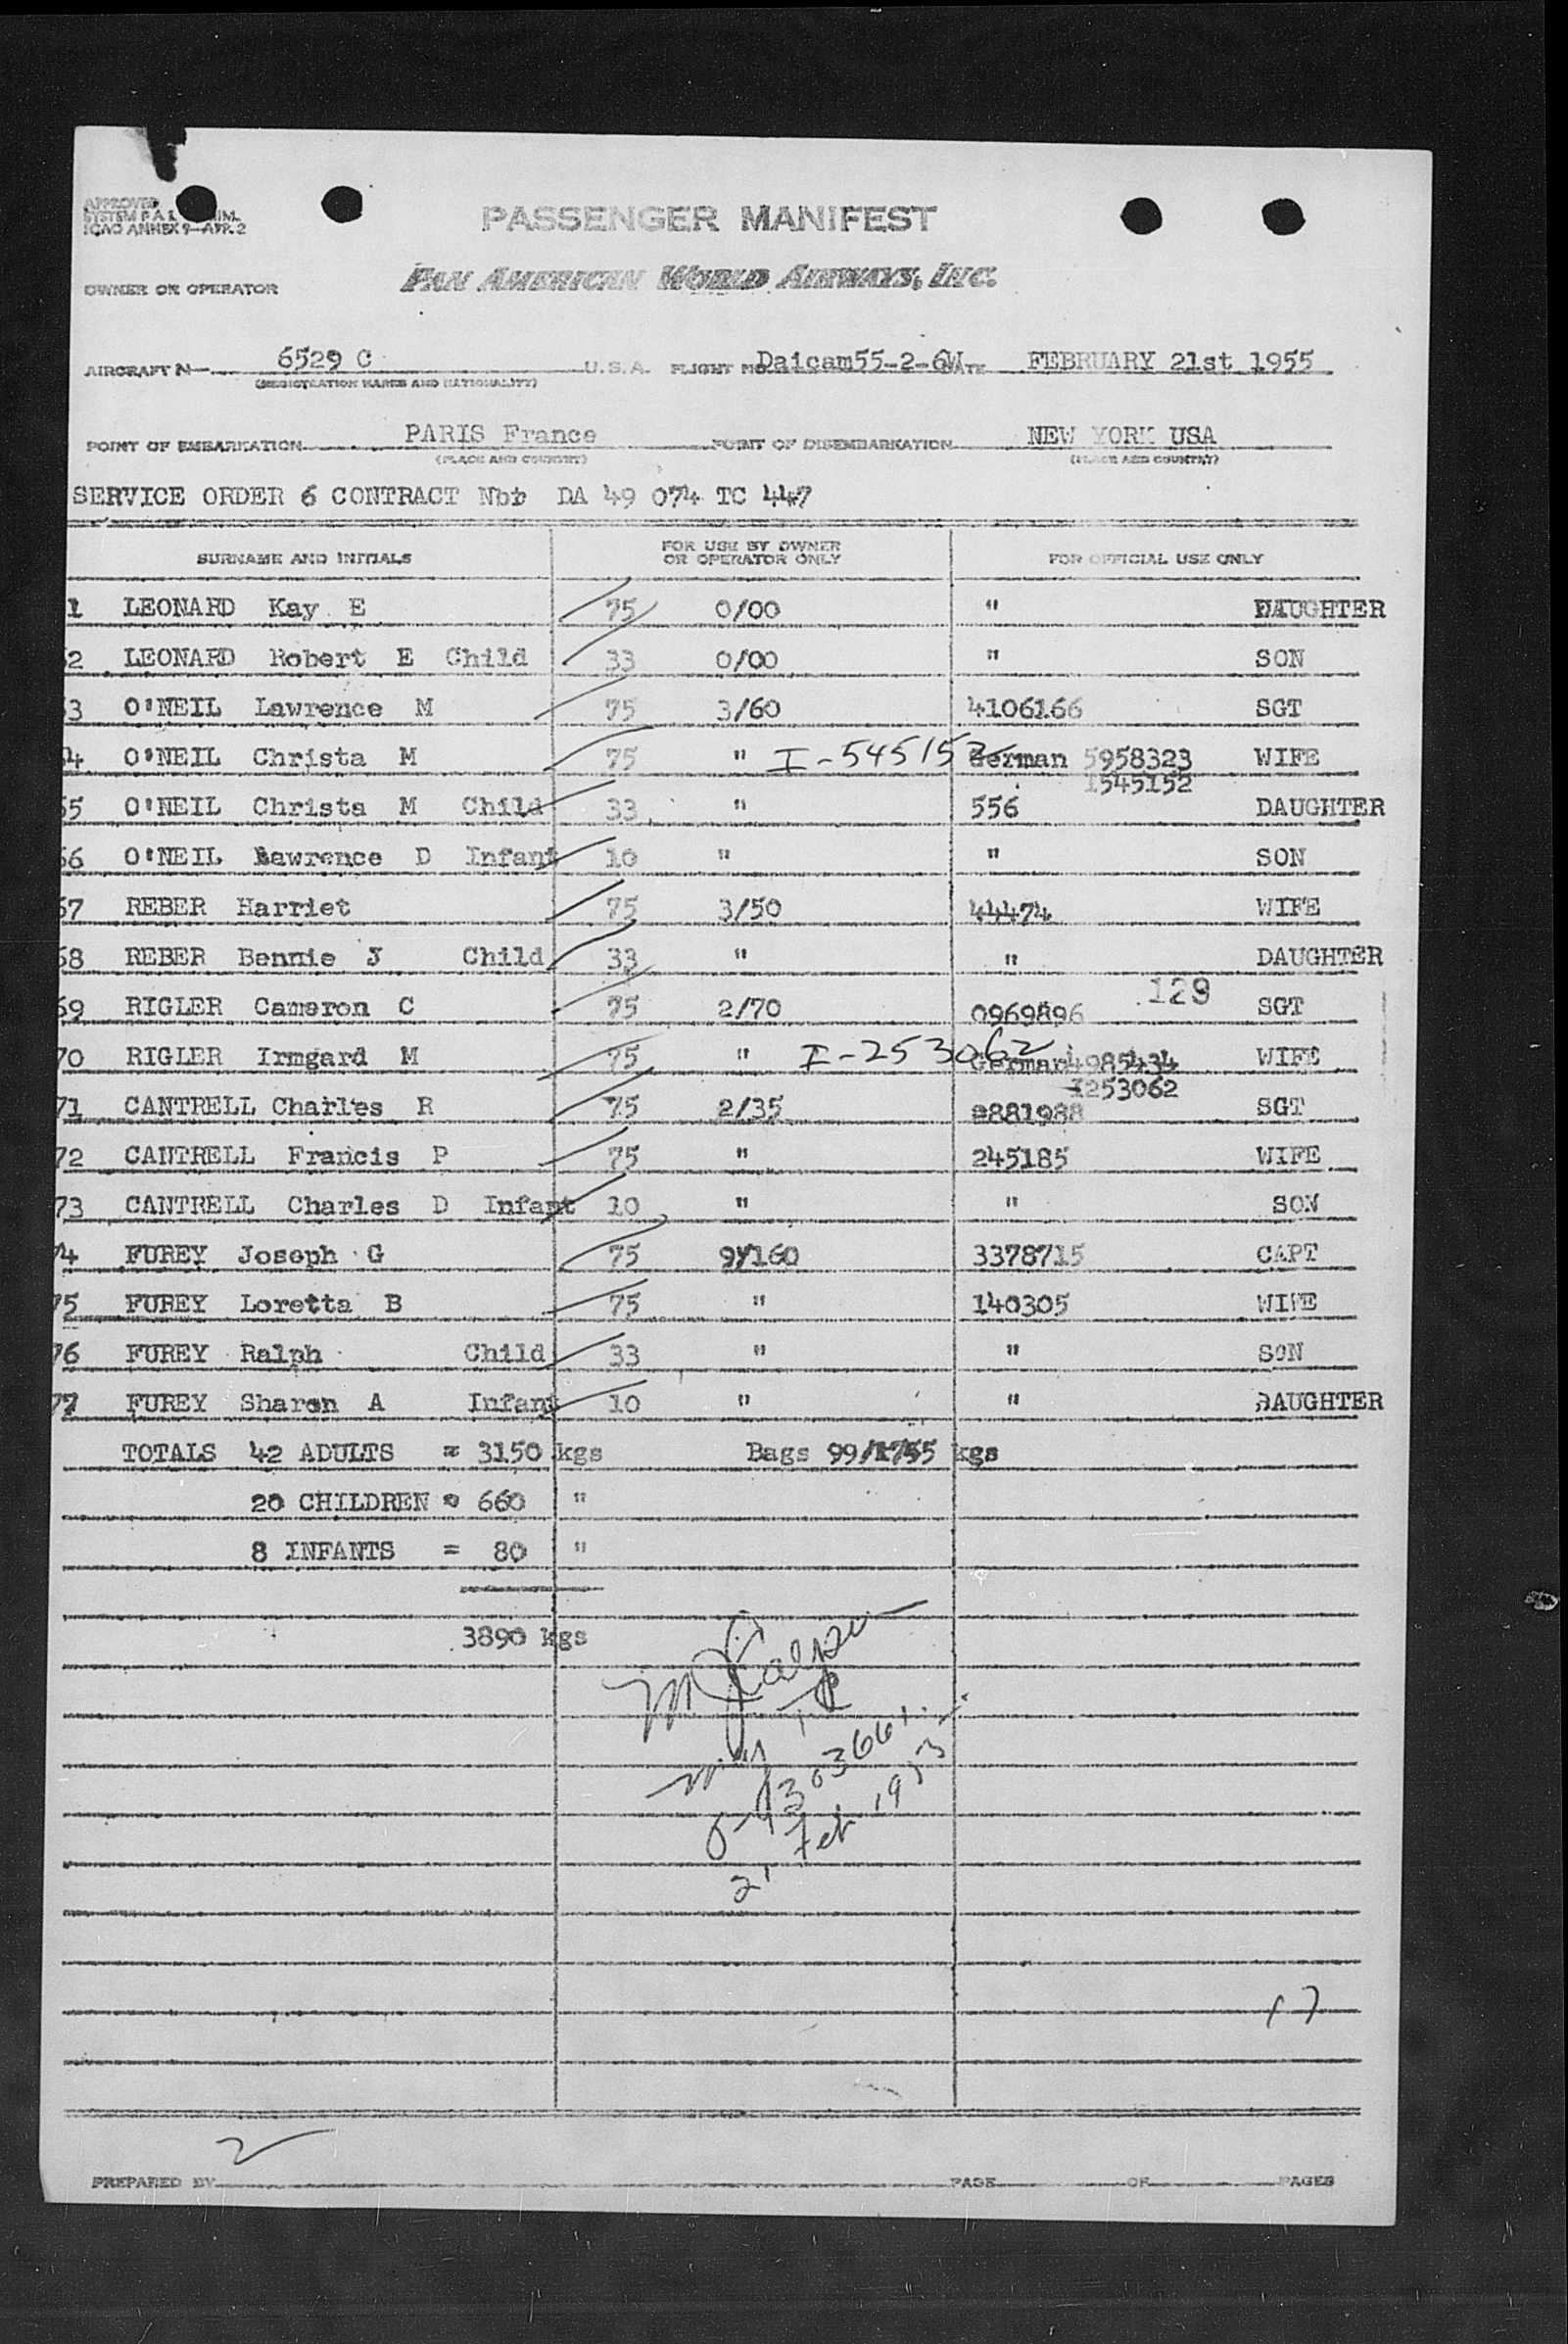 APPROVED
SYSTEM F.A.L. 
ICAO ANNEX 9—APP. 2
PASSENGER MANIFEST
OWNER OR OPERATOR PAN AMERICAN WORLD AIRWAYS, INC.
AIRCRAFT N 6529 C U.S.A. FLIGHT NO Daicam55-2-6W DATE FEBRUARY 21st 1955
(REGISTRATION MARKS AND NATIONALITY)
POINT OF EMBARKATION PARIS France POINT OF DISEMBARKATION NEW YORK USA
(PLACE AND COUNTRY) (PLACE AND COUNTRY)
SERVICE ORDER 6 CONTRACT Nbt DA 49 074 TC 447
SURNAME AND INITIALS FOR USE BY OWNER OR OPERATOR ONLY FOR OFFICIAL USE ONLY
1 LEONARD Kay E 75 0/00 " DAUGHTER
62 LEONARD Robert E Child 33 0/00 " SON
3 O'NEIL Lawrence M 75 3/60 4106166 SGT
4 O'NEIL Christa M 75 " I-545152 German 5958323 WIFE
1545152
65 O'NEIL Christa M Child 33 " 556 DAUGHTER
66 O'NEIL Lawrence D Infant 10 " " SON
67 REBER Harriet 75 3/50 44474 WIFE
68 REBER Bennie J Child 33 " " DAUGHTER
129
69 RIGLER Cameron C 75 2/70 0969896 SGT
70 RIGLER Irmgard M 75 " I-253062 German 4985434 WIFE
I253062
71 CANTRELL Charles R 75 2/35 8881988 SGT
72 CANTRELL Francis P 75 " 245185 WIFE
73 CANTRELL Charles D Infant 10 " " SON
74 FUREY Joseph G 75 9/160 3378715 CAPT
75 FUREY Loretta B 75 " 140305 WIFE
76 FUREY Ralph Child 33 " " SON
77 FUREY Sharon A Infant 10 " " DAUGHTER
TOTALS 42 ADULTS = 3150 kgs Bags 99/1755 kgs
20 CHILDREN = 660 "
8 INFANTS = 80 "
3890 kgs
21 Feb
17
2
PREPARED BY PAGE OF PAGES